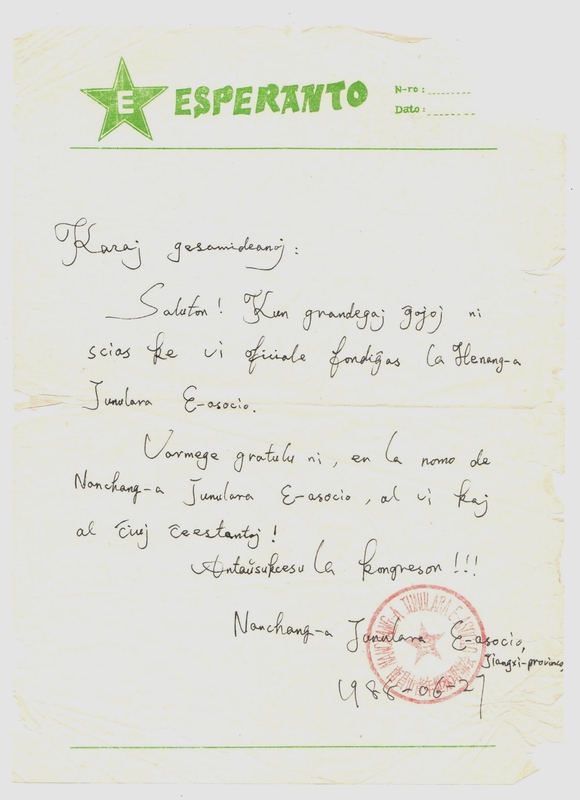 E ESPERANTO
N-ro:
Dato:
Karaj gesamideanoj:
Saluton! Kun grandegaj ĝojoj ni
scias ke vi oficiale fondiĝas la Henang-a
Junulara E-asocio.
Varmege gratulu ni, en la nomo de
Nanchang-a Junulara E-asocio, al vi kaj
al ĉiuj ĉeestantoj!
Antaŭsukcesu la kongreson!!!
Nanchang-a Junulara E-asocio,
Jiangxi-province
1988-06-27
NANCHANG-A JUNULARA E-ASOCIO